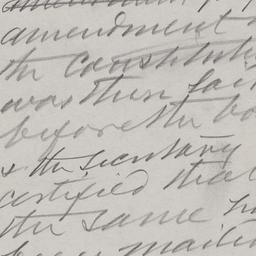 amendment
the Constitution
was then lai
before the bo
& the Secretary
certified that
the same h
been maile